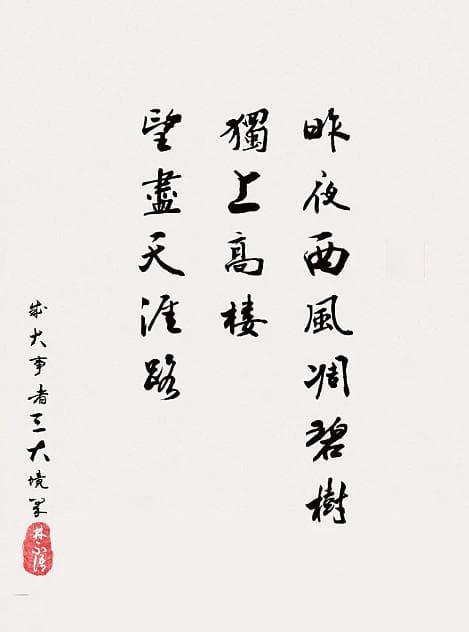 昨夜西風凋碧樹
獨上高楼
望盡天涯路
成大事者三大境界